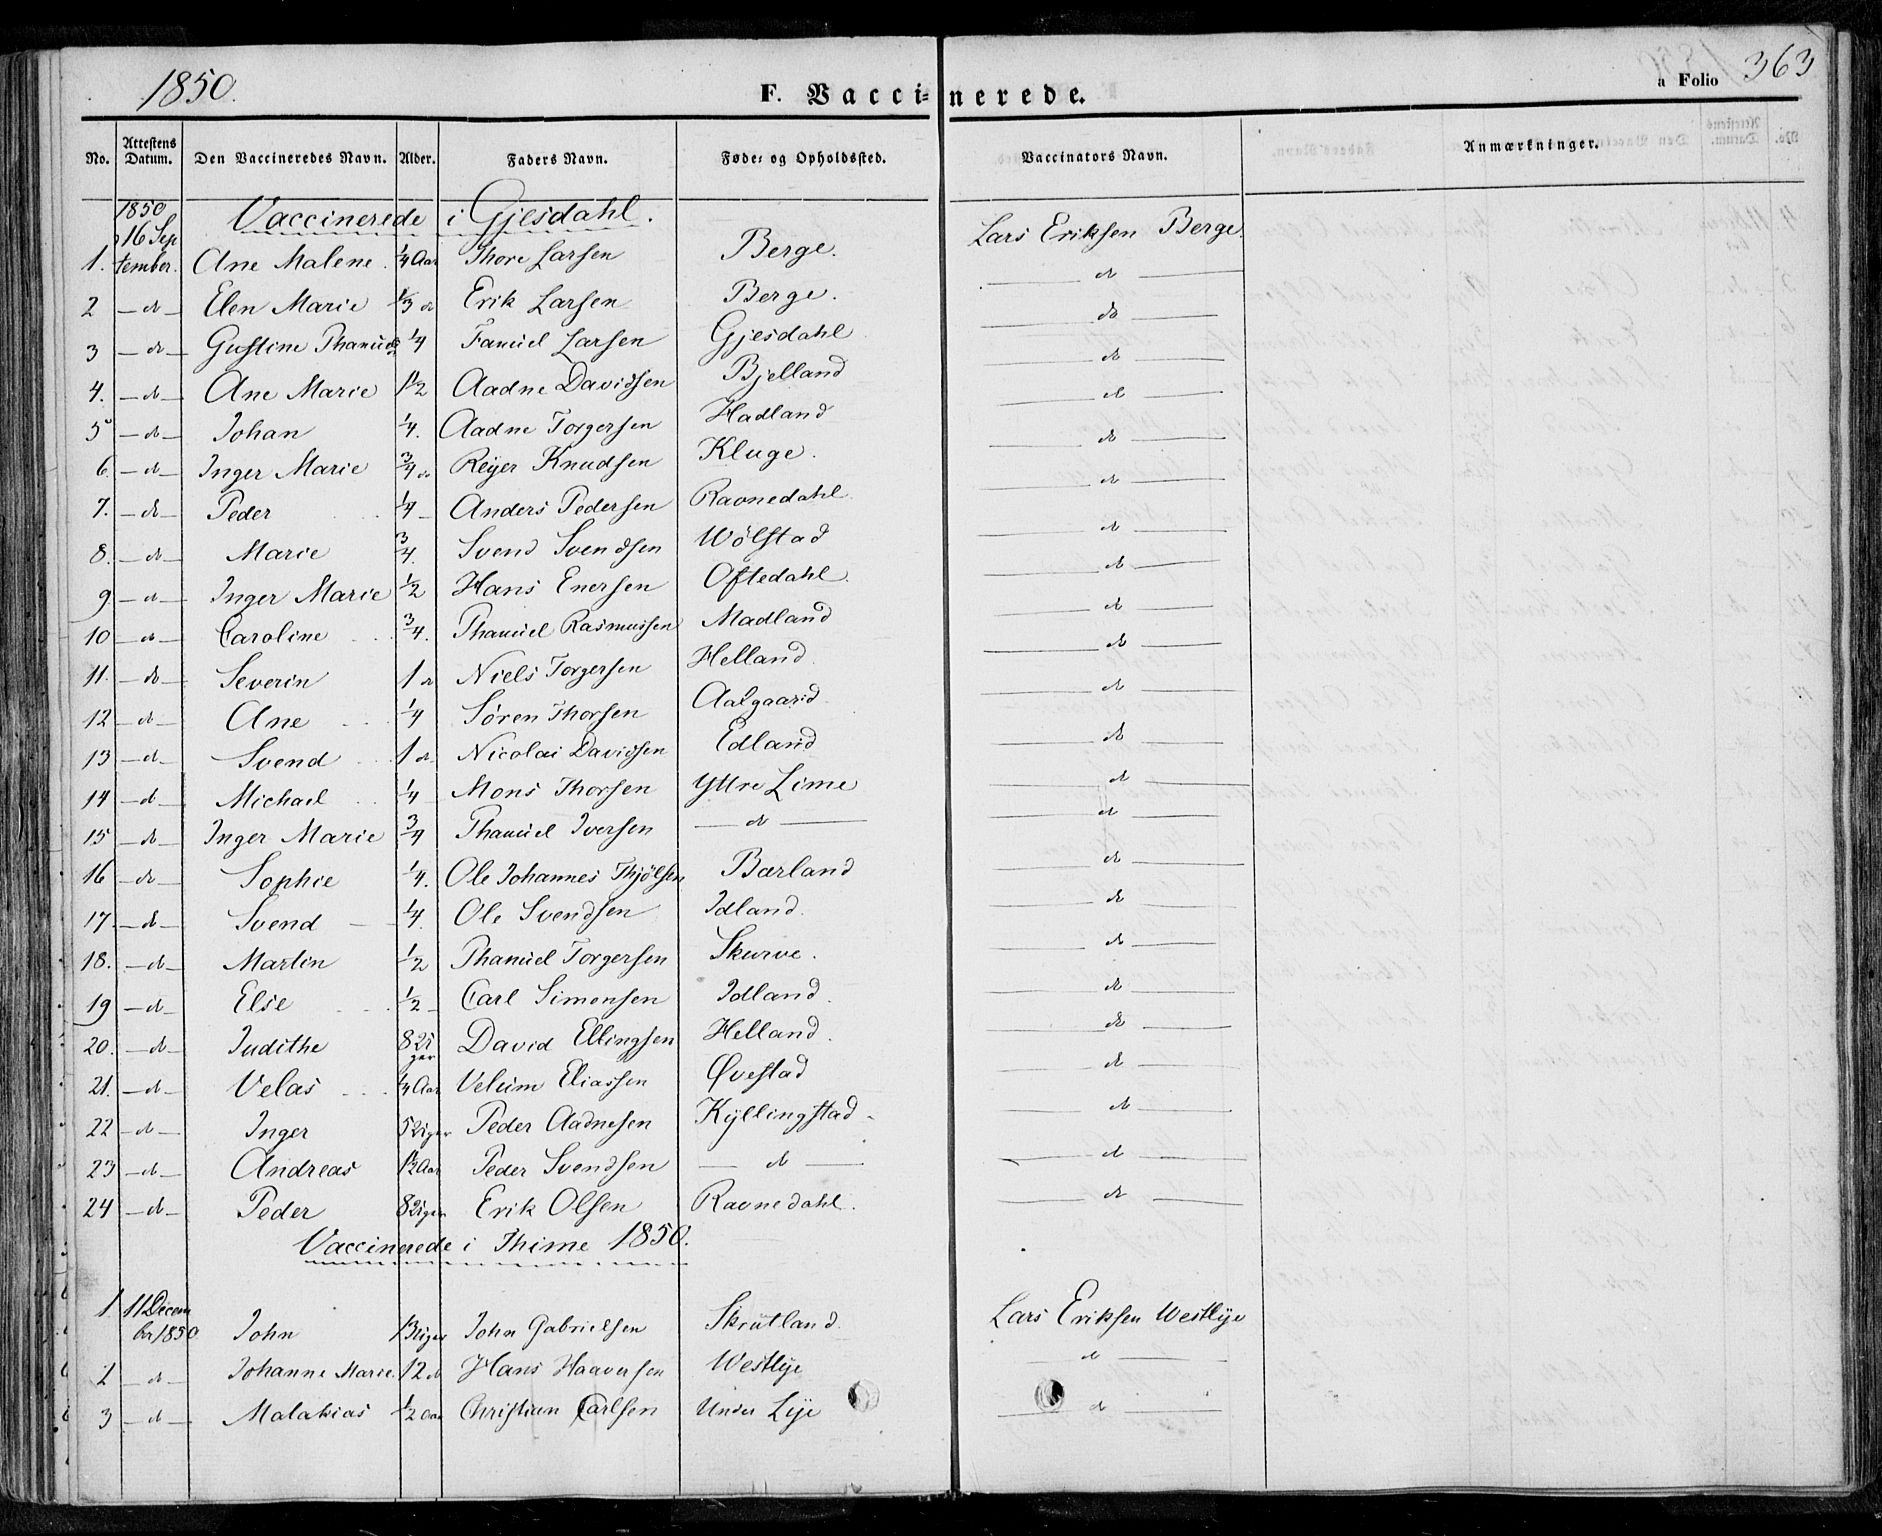 1850. F. Vaccinerede. a Folio 363
No. Attestens Datum. Den Vaccineredes Navn. Alder. Faders Navn. Føde- og Opholdssted. Vaccinators Navn. Anmærkninger.
1850 Vaccinerede i Gjesdahl.
16 Sep Lars Eriksen Berge
1. tember. Ane Malene. 1/4 Aar Thore Larsen Berge. do
2 do Elen Marie 1/3 do Erik Larsen Berge. do
3 do Gustine 1/4 Larsen Gjesdahl do
4. do Ane Marie 1 1/2 Aadne Davidsen Bjelland do
5 do Johan 1/4. Aadne Torgersen Hadland do
6 do Inger Marie 3/4 do Reÿer Knudsen Kluge. do
7. do Peder 1/4 Anders Pedersen Ravnedahl do
8. do Marie 3/4. Svend Svendsen Wølstad do
9 do Inger Marie 1/2 Hans Enersen Oftedahl. do
10 do Caroline 3/4. Thanüel Rasmussen Madland do
11. do Severin 1 do Niels Torgersen Helland. do
12 do Ane 1/4 Søren Thorsen Aalgaard do
13 do Svend 1 do Nicolai Davidsen Edland do
14 do Michael 1/4 Mons Thorsen Yttre Lime do
15 do Inger Marie 3/4 Thanüel Iversen do do
16 do Sophie 1/4. Ole Johannes Thjølsen Bærland do
17. do Svend 1/4. Ole Svendsen Idland. do
18. do Martin 1/2 Thanüel Torgersen Skurve. do
19 do Else 1/2 Carl Simonsen Idland. do
20. do Judithe 8 Uger David Ellingsen Helland. do
21. do Velas 1/4 Aar Veluim Eliassen Øvestad do
22 do Inger 5 Uger Peder Aadnesen Kÿllingstad do
23 do Andreas 1 1/2 Aar Peder Svendsen do do
24 do Peder 8 Uger Erik Olsen Ravnedahl. do
Vaccinerede i Thime 1850.
1 11 Decem
ber 1850 John Uger John Gabrielsen Skrutland. Lars Eriksen Westlÿe
2 do Johanne Marie. 12 do Hans Haaversen Westlÿe do
3 do Malakias 1/2 Aar Christian Carlsen Under Lÿe do